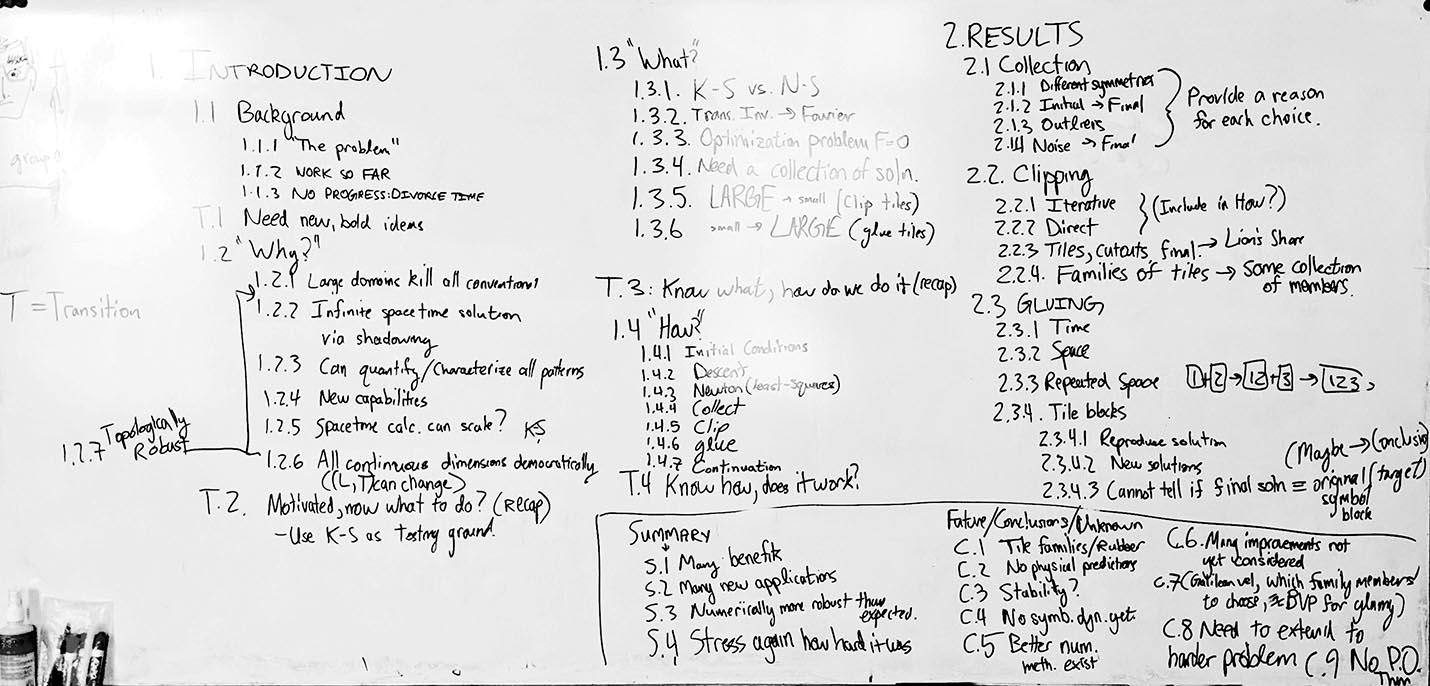 1. INTRODUCTION
1.1 Background
1.1.1 "The problem"
1.1.2 WORK SO FAR
1.1.3 NO PROGRESS: DIVORCE TIME
T.1 Need new, bold ideas
1.2 "Why?"
1.2.1 Large domains kill all conventional
1.2.2 Infinite spacetime solution
via shadowing
1.2.3 Can quantify/characterize all patterns
1.2.4 New capabilities
1.2.5 Spacetime calc. can scale? KS
1.2.6 All continuous dimensions democratically
((L,T) can change)
1.2.7 Topologically
Robust
T.2. Motivated, now what to do? (recap)
- Use K-S as testing ground.
T = Transition
group
1.3 "What?"
1.3.1. K-S vs. N-S
1.3.2. Trans. Inv. → Fourier
1.3.3. Optimization problem F=0
1.3.4. Need a collection of soln.
1.3.5. LARGE → small (Clip tiles)
1.3.6 small → LARGE (glue tiles)
T.3: Know what, how do we do it (recap)
1.4 "How?"
1.4.1 Initial Conditions
1.4.2 Descent
1.4.3 Newton (least-squares)
1.4.4 Collect
1.4.5 Clip
1.4.6 glue
1.4.7 Continuation
T.4 Know how, does it work?
2. RESULTS
2.1 Collection
2.1.1 Different symmetries
2.1.2 Initial → Final
2.1.3 Outliers
2.1.4 Noise → Final
Provide a reason
for each choice.
2.2. Clipping
2.2.1 Iterative
2.2.2 Direct
(Include in How?)
2.2.3 Tiles, cutouts, final. → Lion's Share
2.2.4. Families of tiles → Some collection
of members.
2.3 GLUING
2.3.1 Time
2.3.2 Space
2.3.3 Repeated Space 1+2→12+3→123,
2.3.4. Tile blocks
2.3.4.1 Reproduce solution
2.3.4.2 New solutions
(Maybe → Conclusion)
2.3.4.3 Cannot tell if final soln ≡ original (target)
symbol
block
SUMMARY
S.1 Many benefits
S.2 Many new applications
S.3 Numerically more robust than
expected.
S.4 Stress again how hard it was
Future/Conclusions/Unknown
C.1 Tile families/Rubber
C.2 No physical predictions
C.3 Stability?
C.4 No symb. dyn. yet.
C.5 Better num.
meth. exist
C.6. Many improvements not
yet considered
C.7 (Galilean vel, which family members
to choose, BVP for gluing)
C.8 Need to extend to
harder problem
C.9 No P.O.
Thm